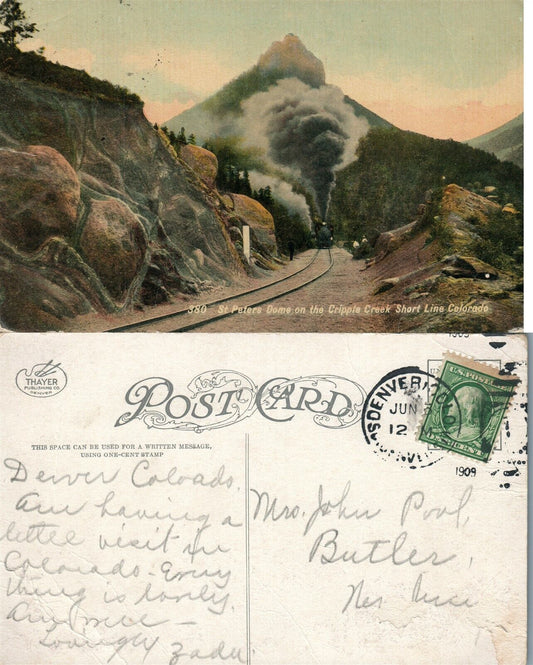 380 St Peters Dome on the Cripple Creek Short Line Colorado
THAYER
PUBLISHING CO.
DENVER
POST CARD
THIS SPACE CAN BE USED FOR A WRITTEN MESSAGE,
USING ONE-CENT STAMP
DENVER, COLO.
JUN
12
1909
1909
U.S. POSTAGE
Denver Coloado,
Am having a
little visit in
Colorado. Every
thing is lovely.
Lovingly Zada.
Mrs. John Pool,
Butler,